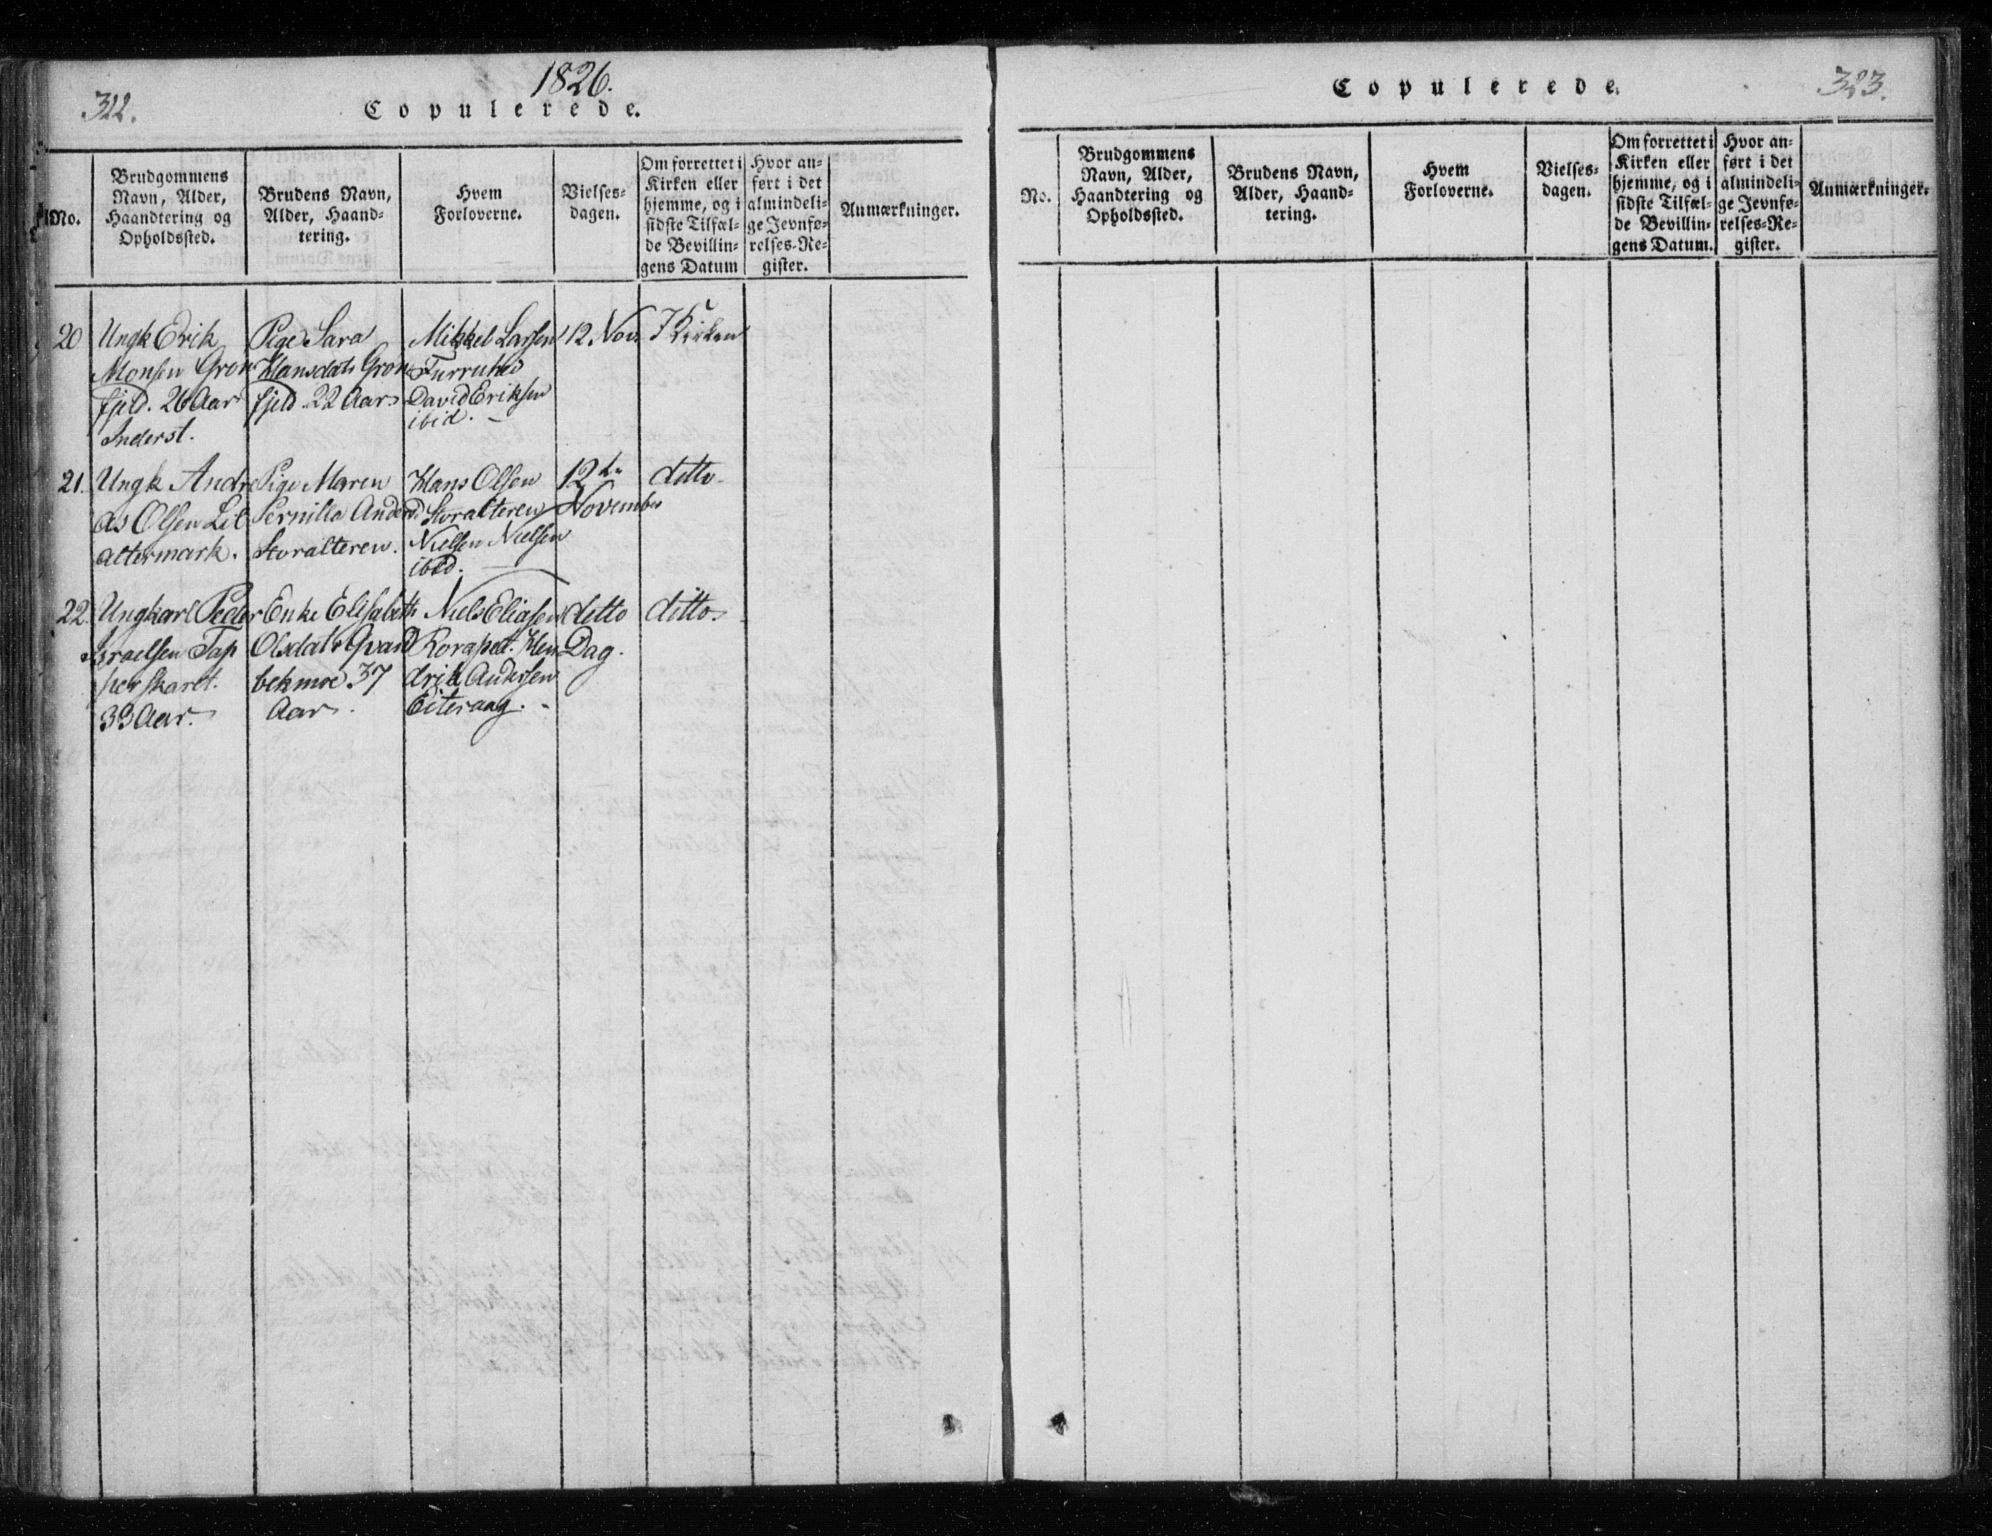 322.
1826.
Copulerede.
No.
Brudgommens
Navn, Alder,
Haandtering og
Opholdssted.
Brudens Navn,
Alder, Haand-
tering.
Hvem
Forloverne.
Vielses-
dagen.
Om forrettet i
Kirken eller
hjemme, og i
sidste Tilfæl-
de Bevillin-
gens Datum
Hvor an-
ført i det
almindeli-
ge Jevnfø-
relses-Re-
gister.
Anmærkninger.
20
Ungk Erik
Monsen Grøn
fjeld. 26 Aar
Inderst.
Pige Sara
Hansdatr Grøn
fjeld 22 Aar
Mikkel Larsen
Furruhei
David Eriksen
ibid.
12 Nov.
I Kirken
21.
Ungk Andre
as Olsen Lil
altermark.
Pige Maren
Pernilla Andersd
Storalteren.
Hans Olsen
Storalteren
Nielsen Nielsen
ibid.
12te
November
ditto
22.
Ungkarl Peder
Israelsen Tap
perskaret.
33 Aar.
Enke Elisabeth
Olsdatr Qvand
bekmoe 37
Aar.
Niels Eliasen
Roragset. Hen
drik Andersen
Eiteraag.
ditto
Dag.
ditto
323.
Copulerede.
No.
Brudgommens
Navn, Alder,
Haandtering og
Opholdssted.
Brudens Navn,
Alder, Haand-
tering.
Hvem
Forloverne.
Vielses-
dagen.
Om forrettet i
Kirken eller
hjemme, og i
sidste Tilfæl-
de Bevillin-
gens Datum.
Hvor an-
ført i det
almindeli-
ge Jevnfø-
relses-Re-
gister.
Anmærkninger.